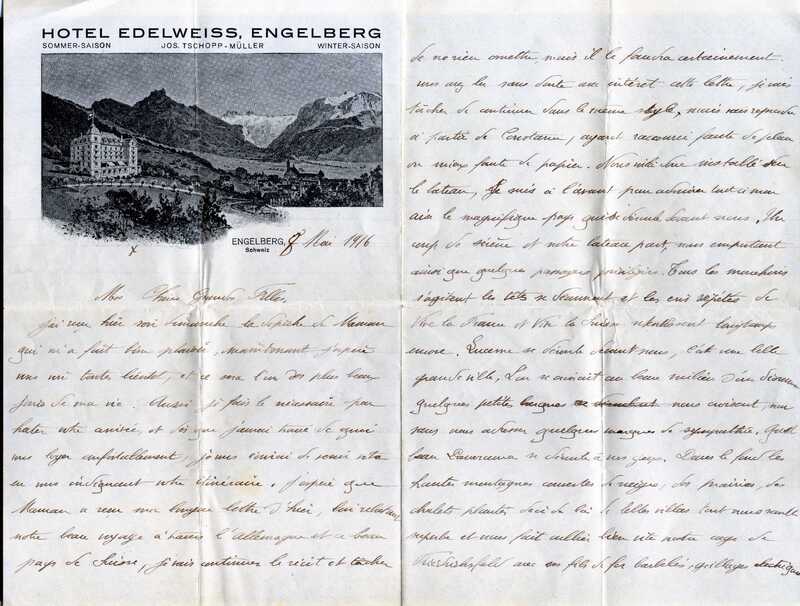 HOTEL EDELWEISS, ENGELBERG
SOMMER-SAISON JOS. TSCHOPP-MÜLLER WINTER-SAISON
ENGELBERG, 8 Mai 1916
Schweiz
x
Mes Chères Grandes Filles,
J'ai reçu hier soir dimanche la dépêche de Maman
qui m'a fait bien plaisir, maintenant j'espère
vous voir toutes bientôt, et ce sera l'un des plus beaux
jours de ma vie. Aussi je fais le nécessaire pour
hâter votre arrivée, et dès que j'aurai trouvé de quoi
vous loger confortablement, je vous écrirai de venir
en vous indiquant votre itinéraire. J'espère que
Maman a reçu ma longue lettre d'hier, lui relatant
notre beau voyage à travers l'Allemagne et ce beau
pays de Suisse, je vais continuer le récit et tâcher
de ne rien omettre, mais il le faudra certainement.
vous avez lu sans doute avec intérêt cette lettre, je vais
tâcher de continuer dans le même style, mais vais reprendre
à partir de Constance, ayant raccourci faute de place
ou mieux faute de papier. Nous voilà donc installés sur
le bateau, je suis à l'avant pour admirer tout à mon
aise le magnifique pays qui se déroule devant nous. Un
coup de sirène et notre bateau part, nous emportant
ainsi que quelques passagers privilégiés. Tous les mouchoirs
s'agitent les têtes se découvrent et les cris répétés de
Vive la France et Vive la Suisse retentissent longtemps
encore. Lucerne se déroule devant nous, c'est une belle
grande ville. L'on se croirait au beau milieu d'un
quelques petites barques nous croisent,
nous adresser quelques marques de sympathie. Quel
beau Panorama se déroule à nos yeux. Dans le fond les
hautes montagnes couvertes de neige, des prairies, des
chalets plantés de ci de là de belles villas tout nous semble
superbe et nous fait oublier bien vite notre cage de
Friedrichsfeld avec ses fils de fer barbelés, grillages électriques